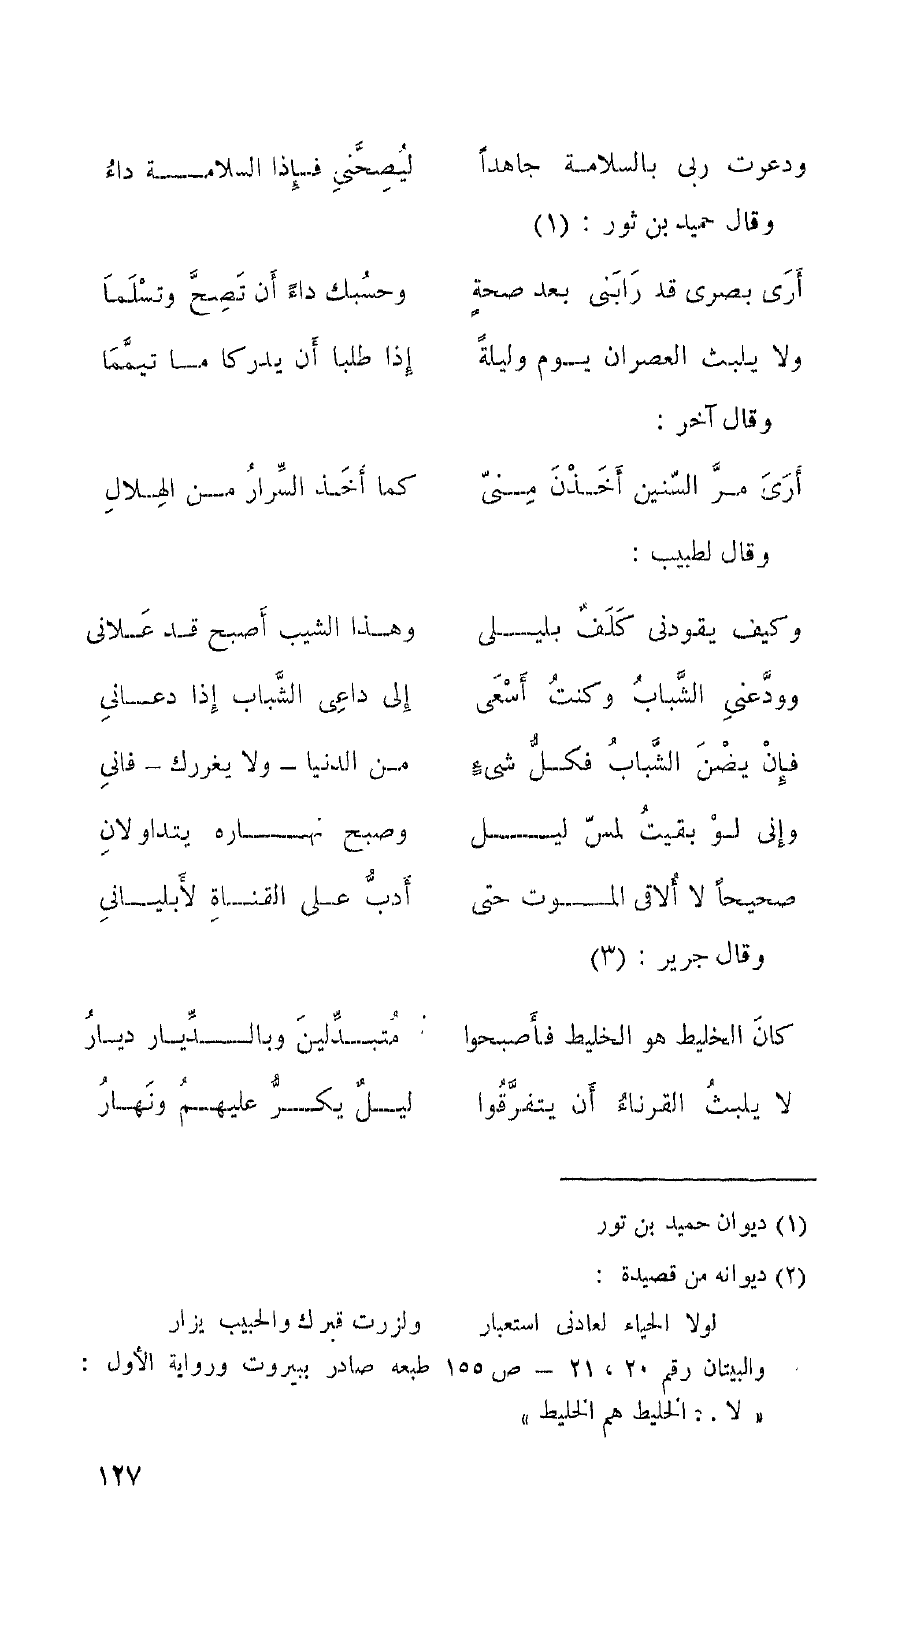 ودعوت ربى بالسلامة جاهداً ليُصِحَّنيِ فإِذا السلامة داءُ
وقال حميد بن ثور : (١)
أَرَى بصرى قد رَابَنى بعد صحةٍ وحسُبك داءً أَن تَصِحَّ وتسْلَمَا
ولا يلبث العصران يوم وليلةً إذا طلبا أَن يدركا ما تيمَّمَا
وقال آخر :
أَرَىَ مرَّ السّنين أَخَذْنَ مِنىّ كما أَخَذ السِّرارُ من الهِلالِ
وقال لطبيب :
وكيف يقودنى كَلَفٌ بليلى وهذا الشيب أَصبح قد عَلانى
وودَّعنيِ الشَّبابُ وكنتُ أَسْعَى إلى داعِى الشَّباب إذا دعانيِ
فإِنْ يضْنَ الشَّبابُ فكلُّ شىءٍ من الدنيا – ولا يغررك – فانيِ
وإنى لوْ بقيتُ لمسّ ليل وصبح نهاره يتداولانِ
صحيحاً لا أُلاقى الموت حتى أَدبُّ على القناةِ لأَبليانيِ
وقال جرير : (٣)
كانَ الخليط هو الخليط فأَصبحوا مُتبدِّلينَ وبالدِّيار ديارُ
لا يلبثُ القرناءُ أَن يتفرَّقُوا ليلٌ يكرُّ عليهمُ ونَهارُ
(١) ديوان حميد بن تور
(٢) ديوانه من قصيدة :
لولا الحياء لعادنى استعبار ولزرت قبرك والحبيب يزار
والبيتان رقم ٢٠ ، ٢١ – ص ١٥٥ طبعه صادر ببيروت ورواية الأول :
« لا . : الخليط هم الخليط »
١٢٧